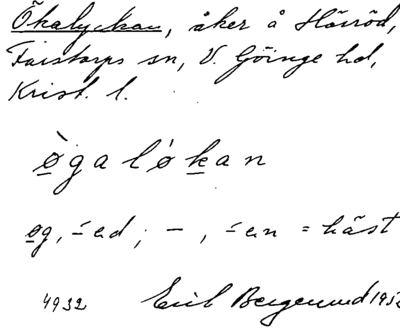 Ökalyckan, åker å Hårröd,
Farstorps sn, V. Göinge hd,
Krist. l.
ø̀galǿkan
øg, -ed; –, -en = häst
4932 Eril Bergerund 195